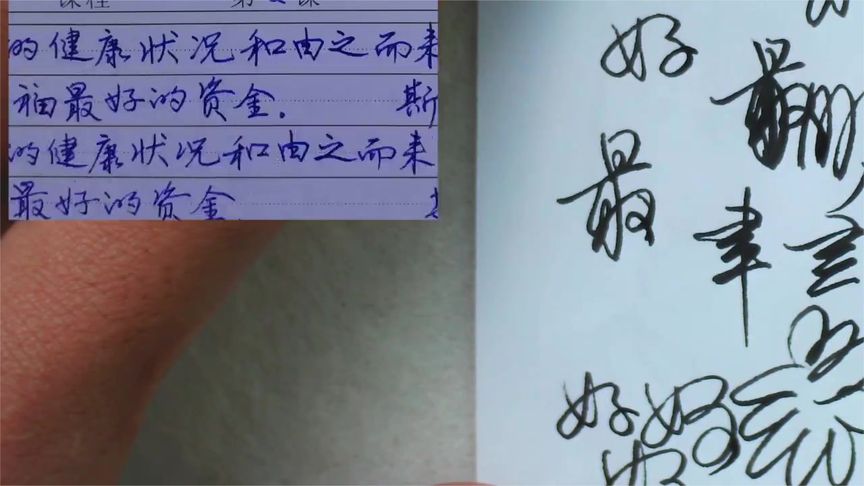 课程 第 课
的健康状况和由之而来
福最好的资金. 斯
的健康状况和由之而来
最好的资金
好
最
最
好好
好